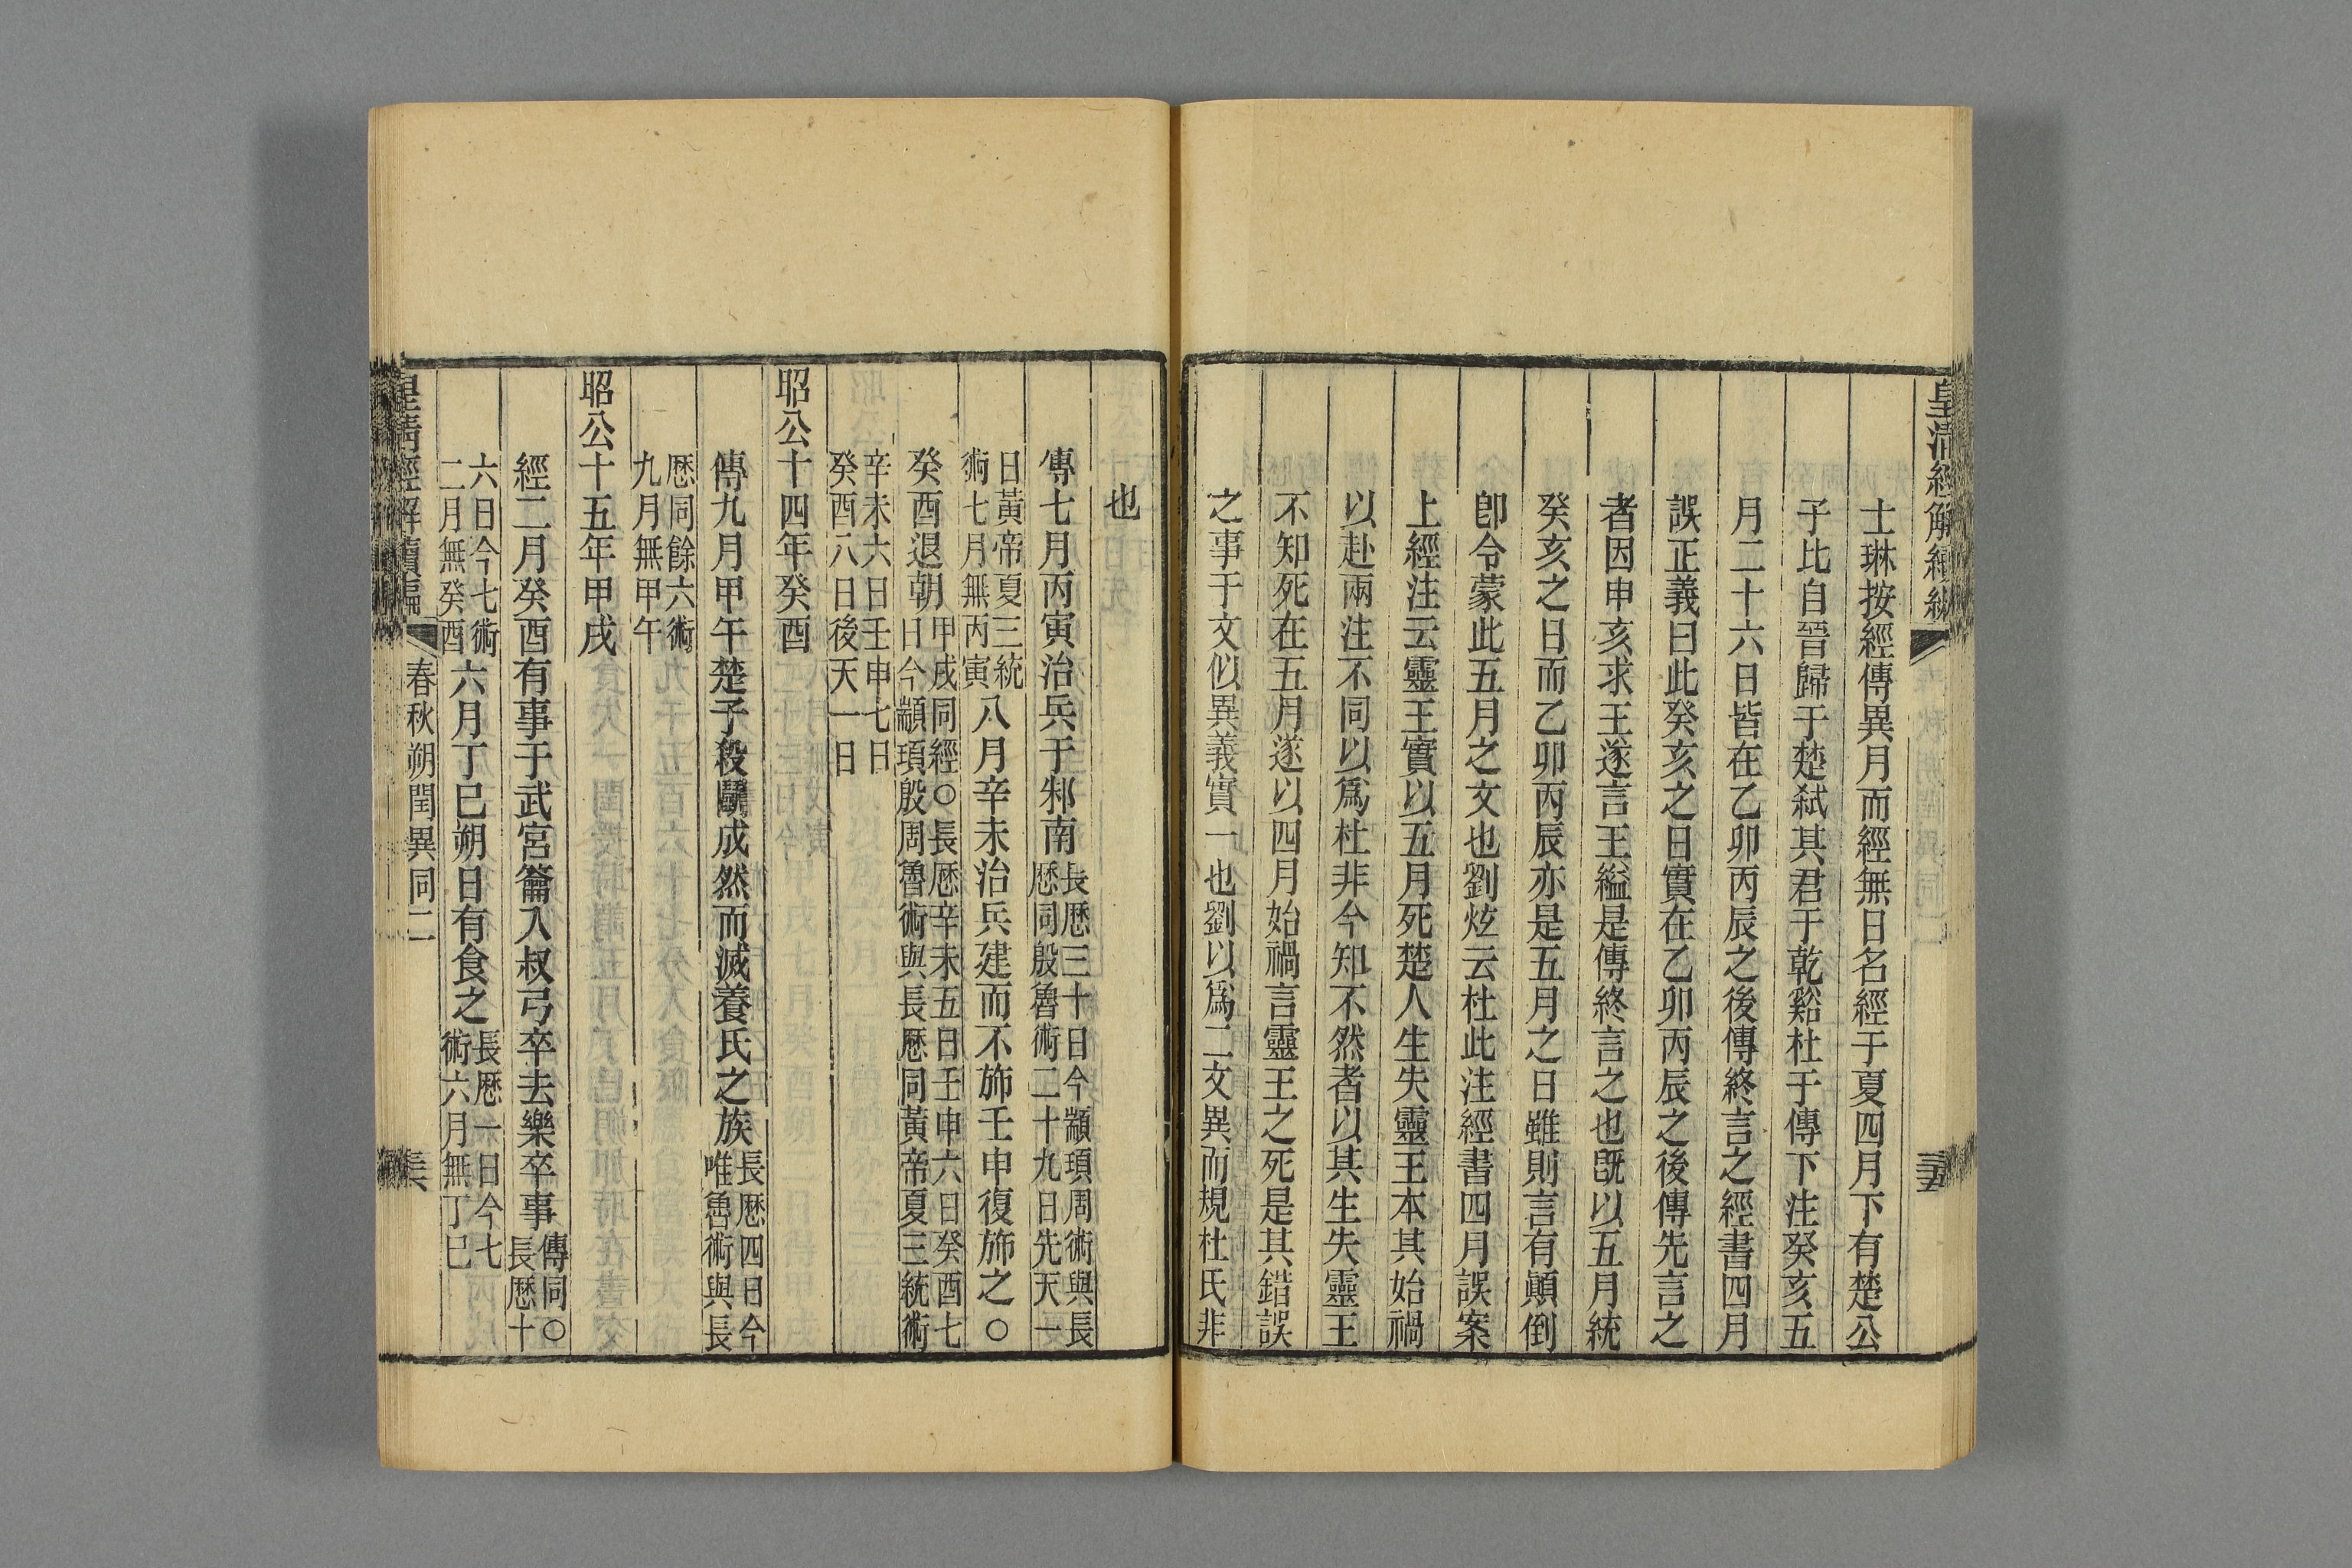 皇清經解續編
士琳按經傳異月而經無日名經于夏四月下有楚公
子比自晉歸于楚弑其君于乾谿杜于傳下注癸亥五
月二十六日皆在乙卯丙辰之後傳終言之經書四月
誤正義曰此癸亥之日實在乙卯丙辰之後傳先言之
者因申亥求王遂言王縊是傳終言之也既以五月統
癸亥之日而乙卯丙辰亦是五月之日雖則言有顚倒
卽令蒙此五月之文也劉炫云杜此注經書四月誤案
上經注云靈王實以五月死楚人生失靈王本其始禍
以赴兩注不同以爲杜非今知不然者以其生失靈王
不知死在五月遂以四月始禍言靈王之死是其錯誤
之事于文似異義實一也劉以爲二文異而規杜氏非
也
傳七月丙寅治兵于邾南長厯三十日今顓頊周術與長
厯同殷魯術二十九日先天一
日黃帝夏三統
術七月無丙寅八月辛未治兵建而不旆壬申復旆之○
癸酉退朝甲戌同經○長厯辛未五日壬申六日癸酉七
日今顓頊殷周魯術與長厯同黃帝夏三統術
辛未六日壬申七日
癸酉八日後天一日
昭公十四年癸酉
傳九月甲午楚子殺鬭成然而滅養氏之族長厯四日今
唯魯術與長
厯同餘六術
九月無甲午
昭公十五年甲戌
經二月癸酉有事于武宮籥入叔弓卒去樂卒事傳同○
長厯十
六日今七術
二月無癸酉六月丁巳朔日有食之長厯一日今七
術六月無丁巳
皇清經解續編
春秋朔閏異同二